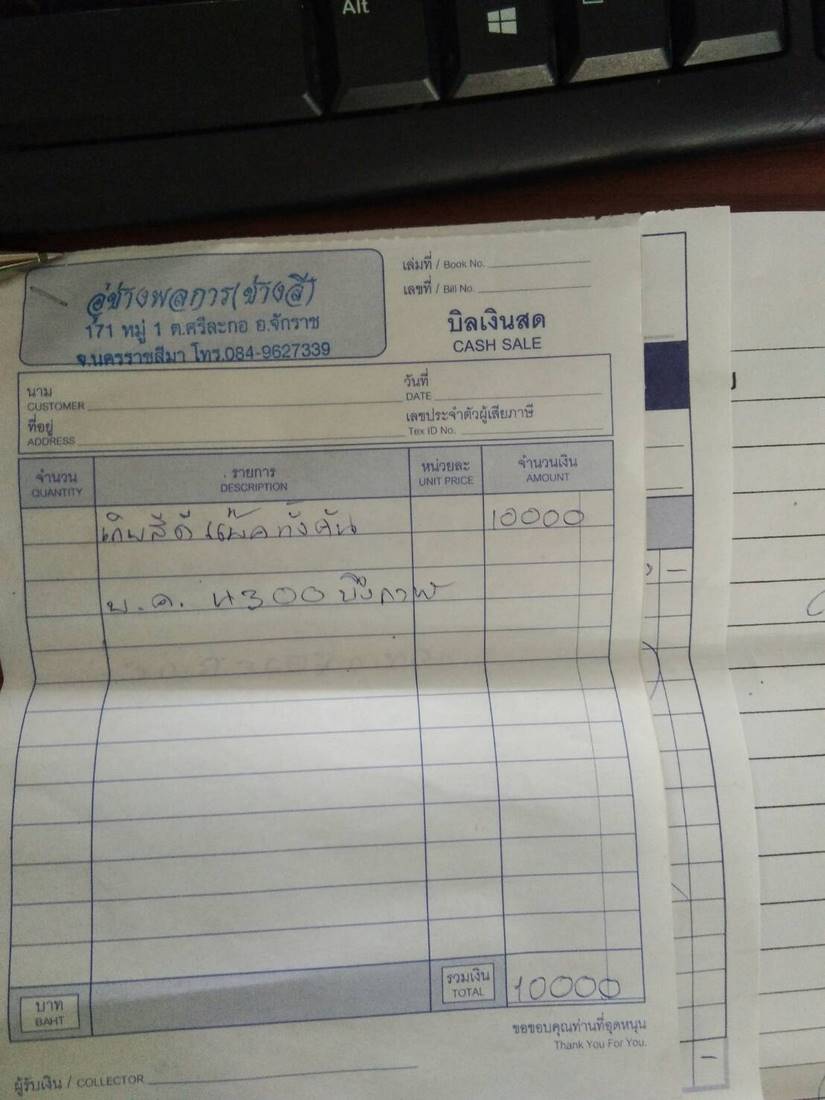 Alt
อู่ช่างพลการ(ช่างสี)
171 หมู่ 1 ต.ศรีละกอ อ.จักราช
จ.นครราชสีมา โทร.084-9627339
เล่มที่ / Book No.
เลขที่ / Bill No.
บิลเงินสด
CASH SALE
นาม
CUSTOMER
วันที่
DATE
ที่อยู่
ADDRESS
เลขประจำตัวผู้เสียภาษี
Tex ID No.
จำนวน รายการ หน่วยละ จำนวนเงิน
QUANTITY DESCRIPTION UNIT PRICE AMOUNT
เก็บสี ทั้งคัน 10000
บ.ค. 4300 บึงกาฬ
บาท
BAHT
รวมเงิน
TOTAL
10000
ขอขอบคุณท่านที่อุดหนุน
Thank You For You.
ผู้รับเงิน / COLLECTOR